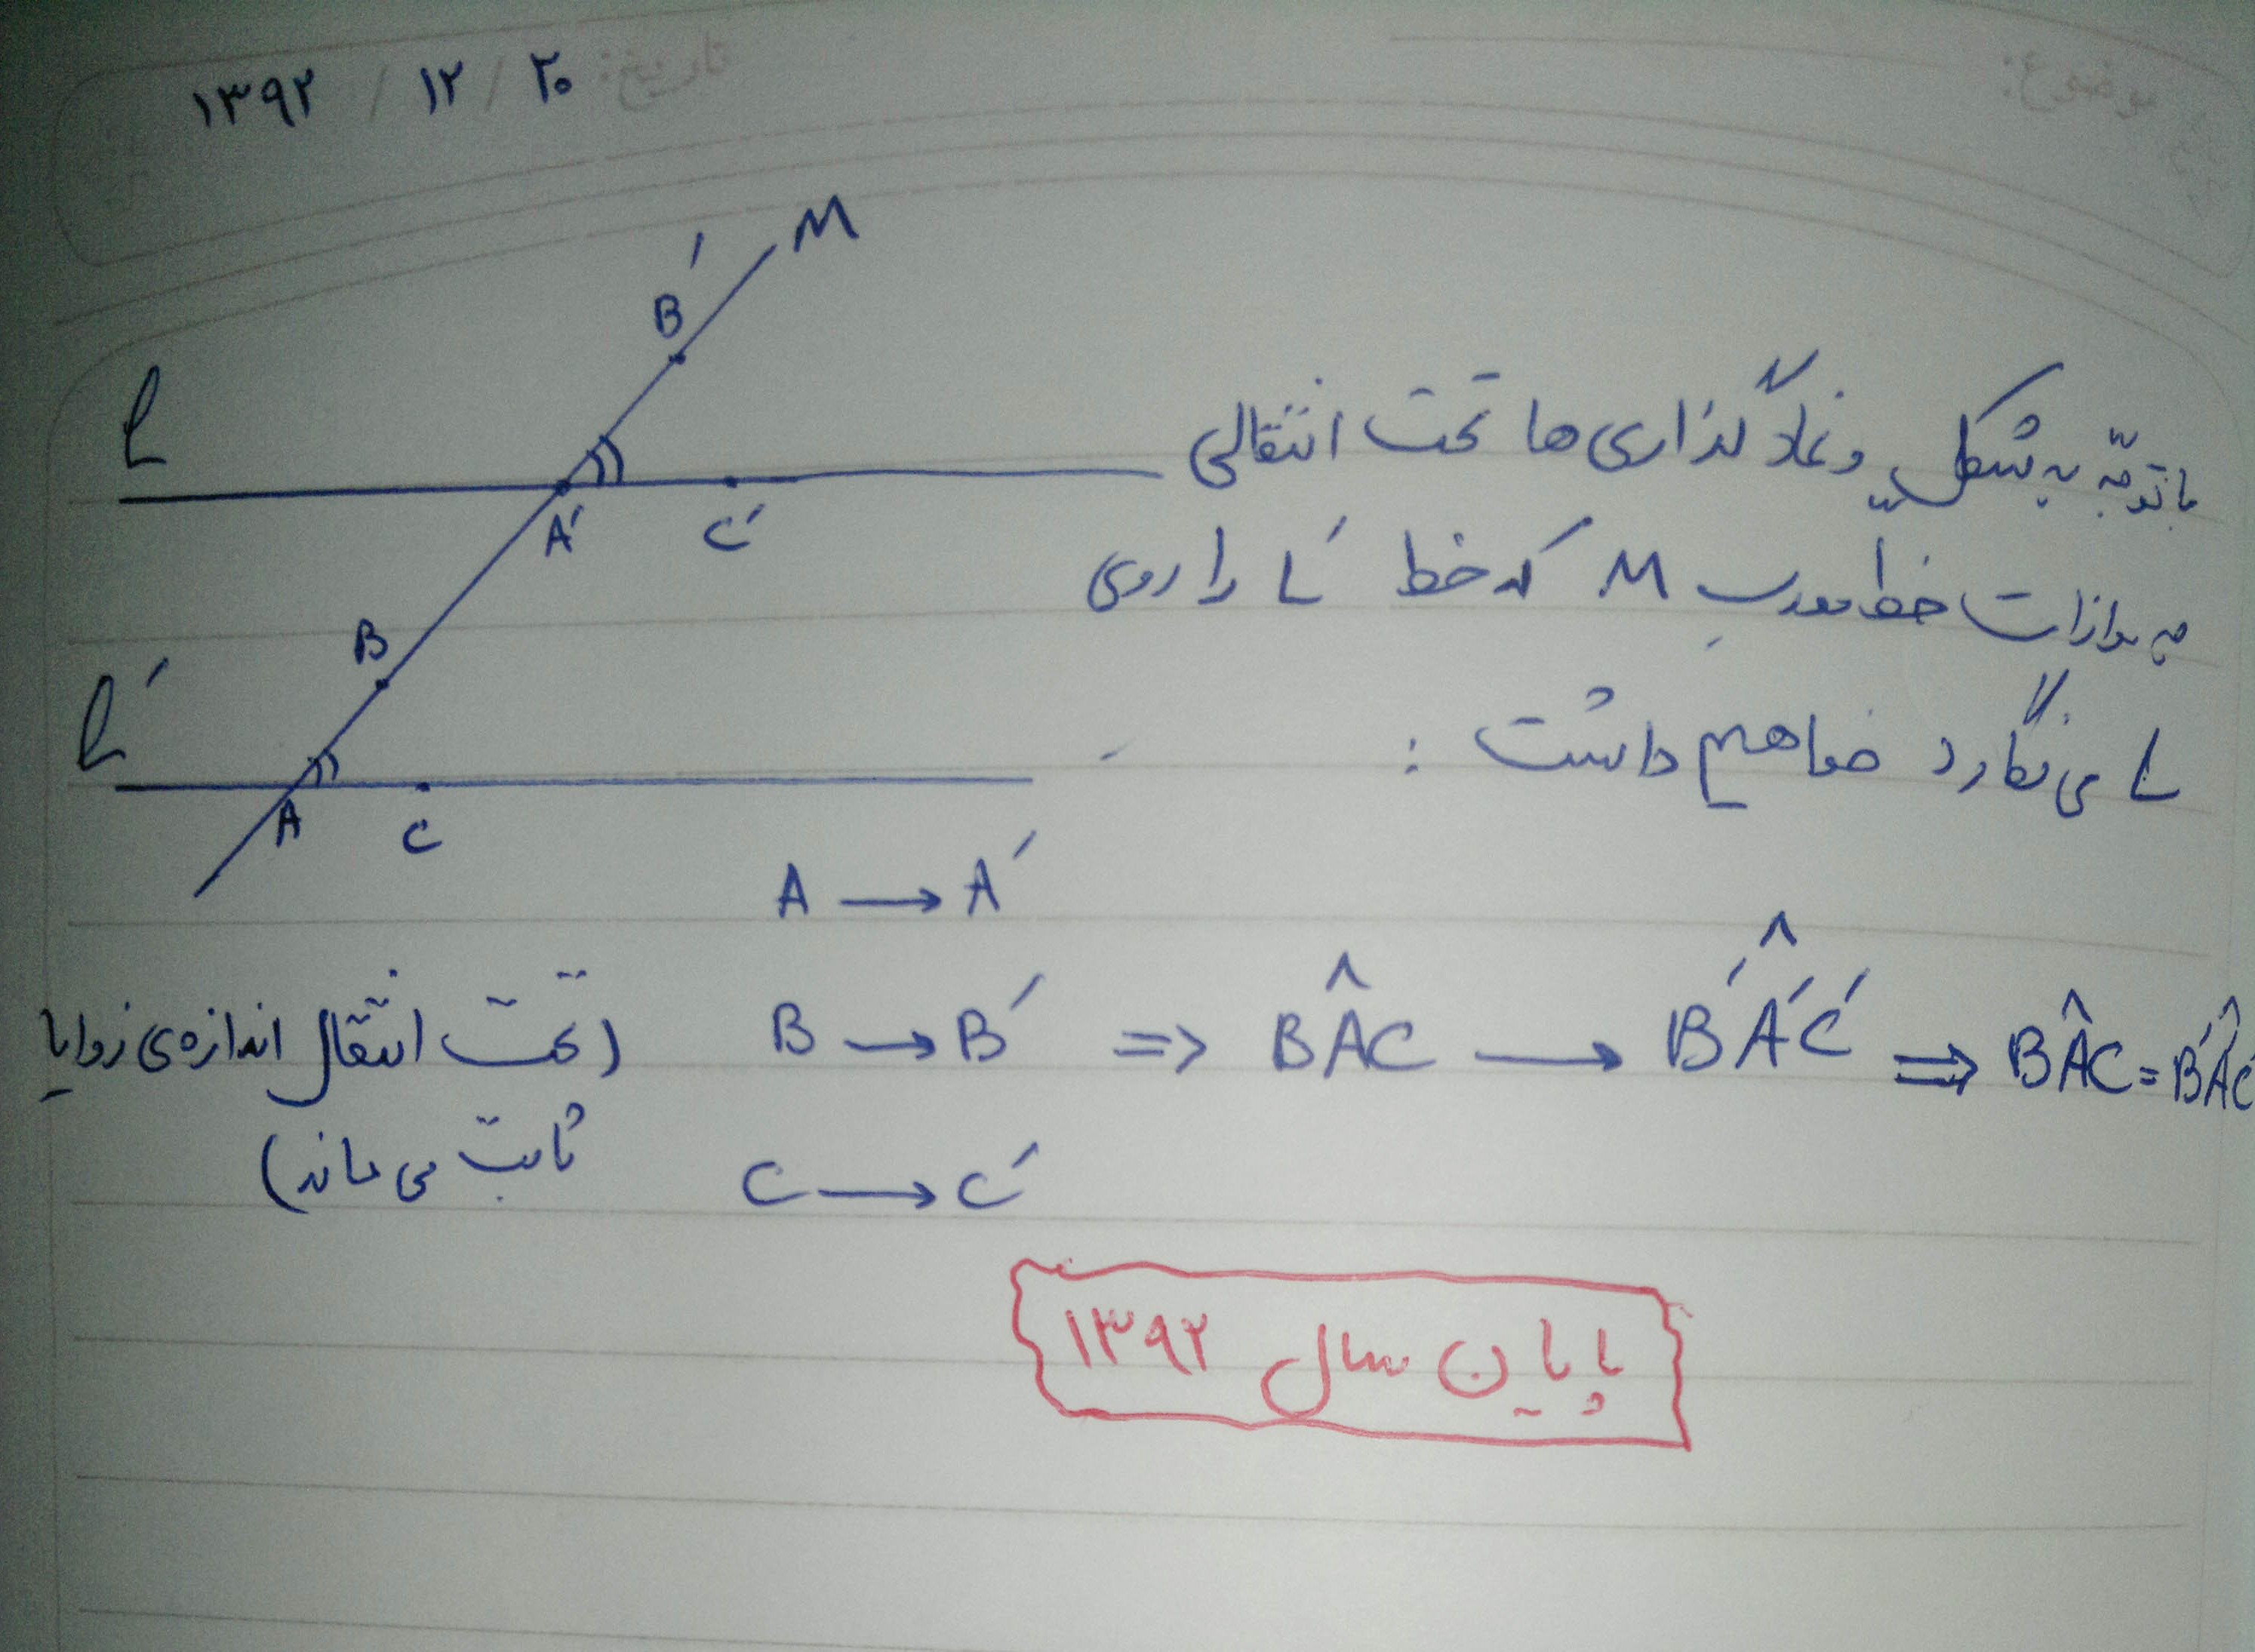 موضوع:
تاریخ: ۲۰ / ۱۲ / ۱۳۹۲
M
B′
L
A′ C′
B
L′
A C
با توجّه به شکل و نمادگذاری ها تحت انتقالی
به موازات خط مورب M که خط L′ را روی
L می نگارد خواهیم داشت :
A → A′
B → B′ => BÂC → B′Â′C′ => BÂC = B′Â′C′
C → C′
(تحت انتقال اندازه‌ی زوایا
ثابت می ماند)
پایان سال ۱۳۹۲